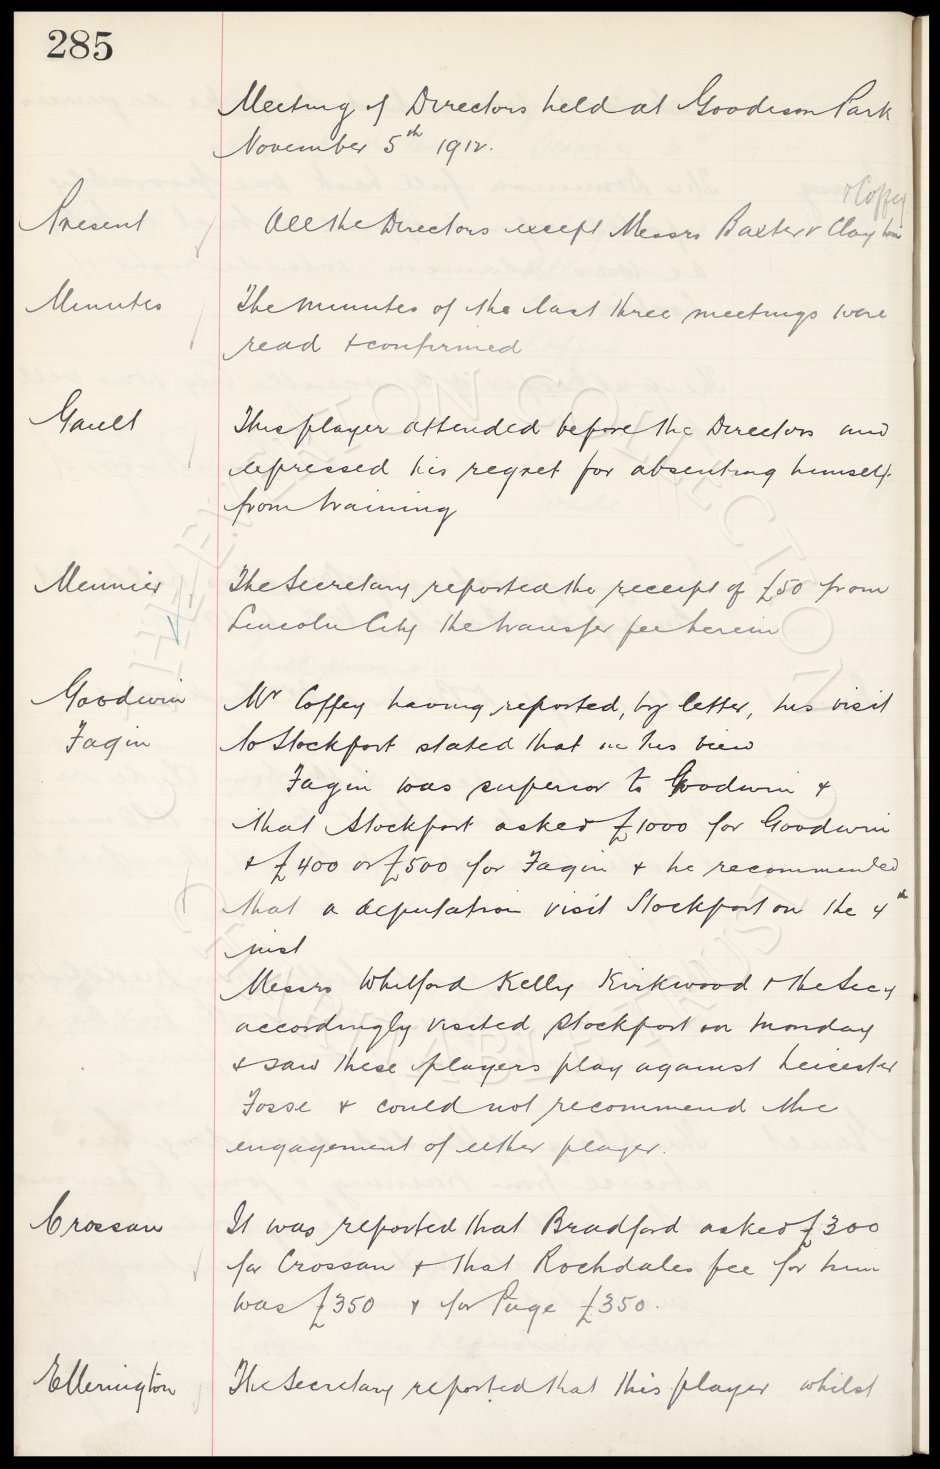 285
Meeting of Directors held at Goodison Park
November 5th 1912.
& Coffey
Present All the Directors except Messrs Baxter & Clayton
Minutes The minutes of the last three meetings were
read & confirmed
Gault This player attended before the Directors and
expressed his regret for absenting himself
from training
Meunier The Secretary reported the receipt of £50 from
Lincoln City the transfer fee herein
Goodwin Mr Coffey having reported, by letter, his visit
Fagin to Stockport stated that in his view
Fagin was superior to Goodwin &
that Stockport asked £1000 for Goodwin
& £400 or £500 for Fagin & he recommended
that a deputation visit Stockport on the 4th
inst
Messrs Whitford Kelly Kirkwood & the Secy
accordingly visited Stockport on Monday
& saw these players play against Leicester
Fosse & could not recommend the
engagement of either player.
Crossan It was reported that Bradford asked £300
for Crossan & that Rochdales fee for him
was £350 & for Page £350.
Ellerington The Secretary reported that this player whilst